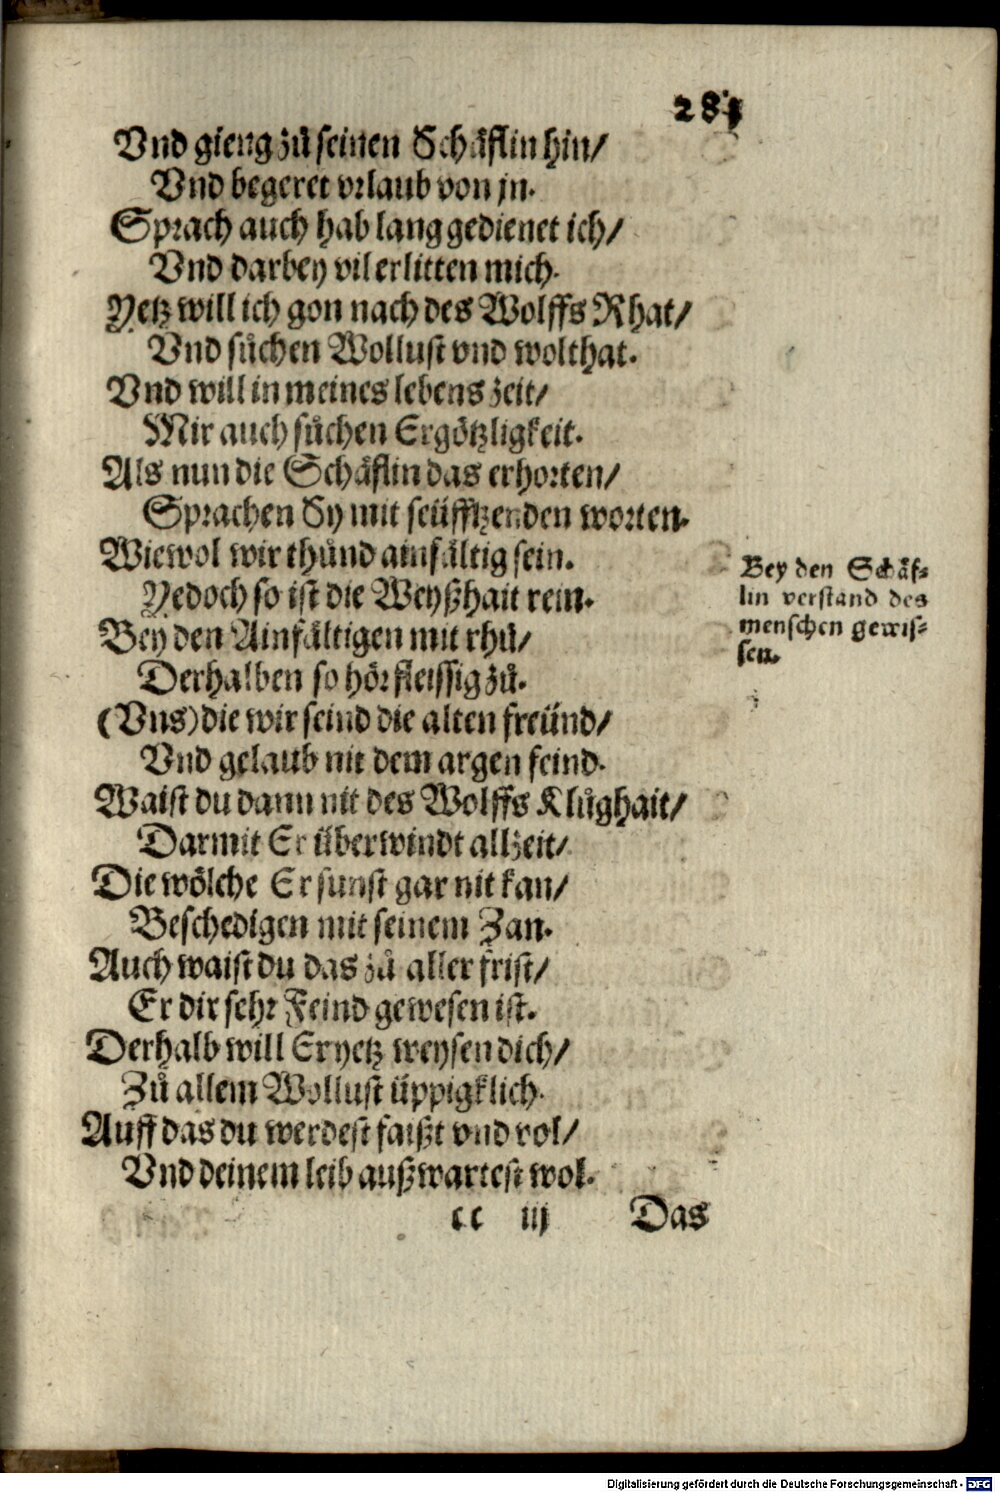 281
Vnd gieng zů seinen Schäflin hin/
Vnd begeret vrlaub von jn.
Sprach auch hab lang gedienet ich/
Vnd darbey vil erlitten mich.
Yetz will ich gon nach des Wolffs Rhat/
Vnd sůchen Wollust vnd wolthat.
Vnd will in meines lebens zeit/
Mir auch sůchen Ergötzligkeit.
Als nun die Schäflin das erhorten/
Sprachen Sy mit seüfftzenden worten.
Wiewol wir thůnd ainfältig sein.
Yedoch so ist die Weyßhait rein.
Bey den Ainfältigen mit rhů/
Derhalben so hör fleissig zů.
(Vns) die wir seind die alten freünd/
Vnd gelaub nit dem argen feind.
Waist du dann nit des Wolffs Klůghait/
Darmit Er überwindt allzeit/
Die wölche Er sunst gar nit kan/
Beschedigen mit seinem Zan.
Auch waist du das zů aller frist/
Er dir sehr Feind gewesen ist.
Derhalb will Er yetz weysen dich/
Zů allem Wollust üppigklich.
Auff das du werdest faißt vnd vol/
Vnd deinem leib außwartest wol.
cc iij Das
Bey den Schäf-
lin verstand des
menschen gewis-
sen.
Digitalisierung gefördert durch die Deutsche Forschungsgemeinschaft - DFG